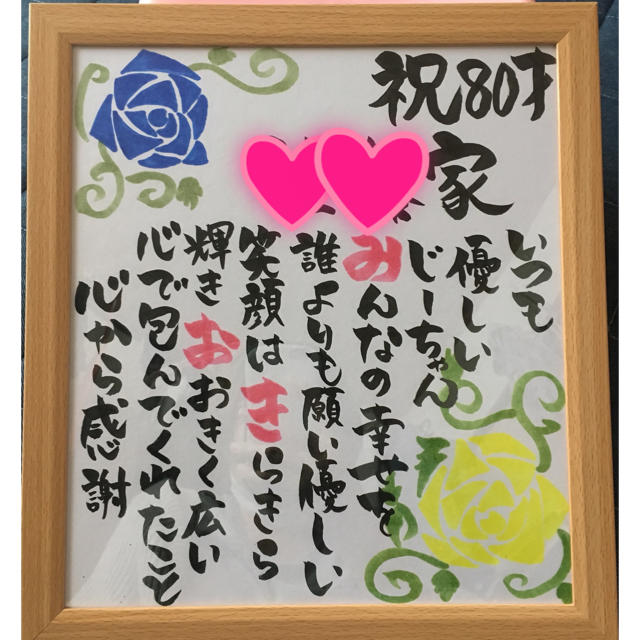 祝80才
家
いつも
優しい
じーちゃん
みんなの幸せを
誰よりも願い優しい
笑顔はきらきら
輝きおおきく広い
心で包んでくれたこと
心から感謝